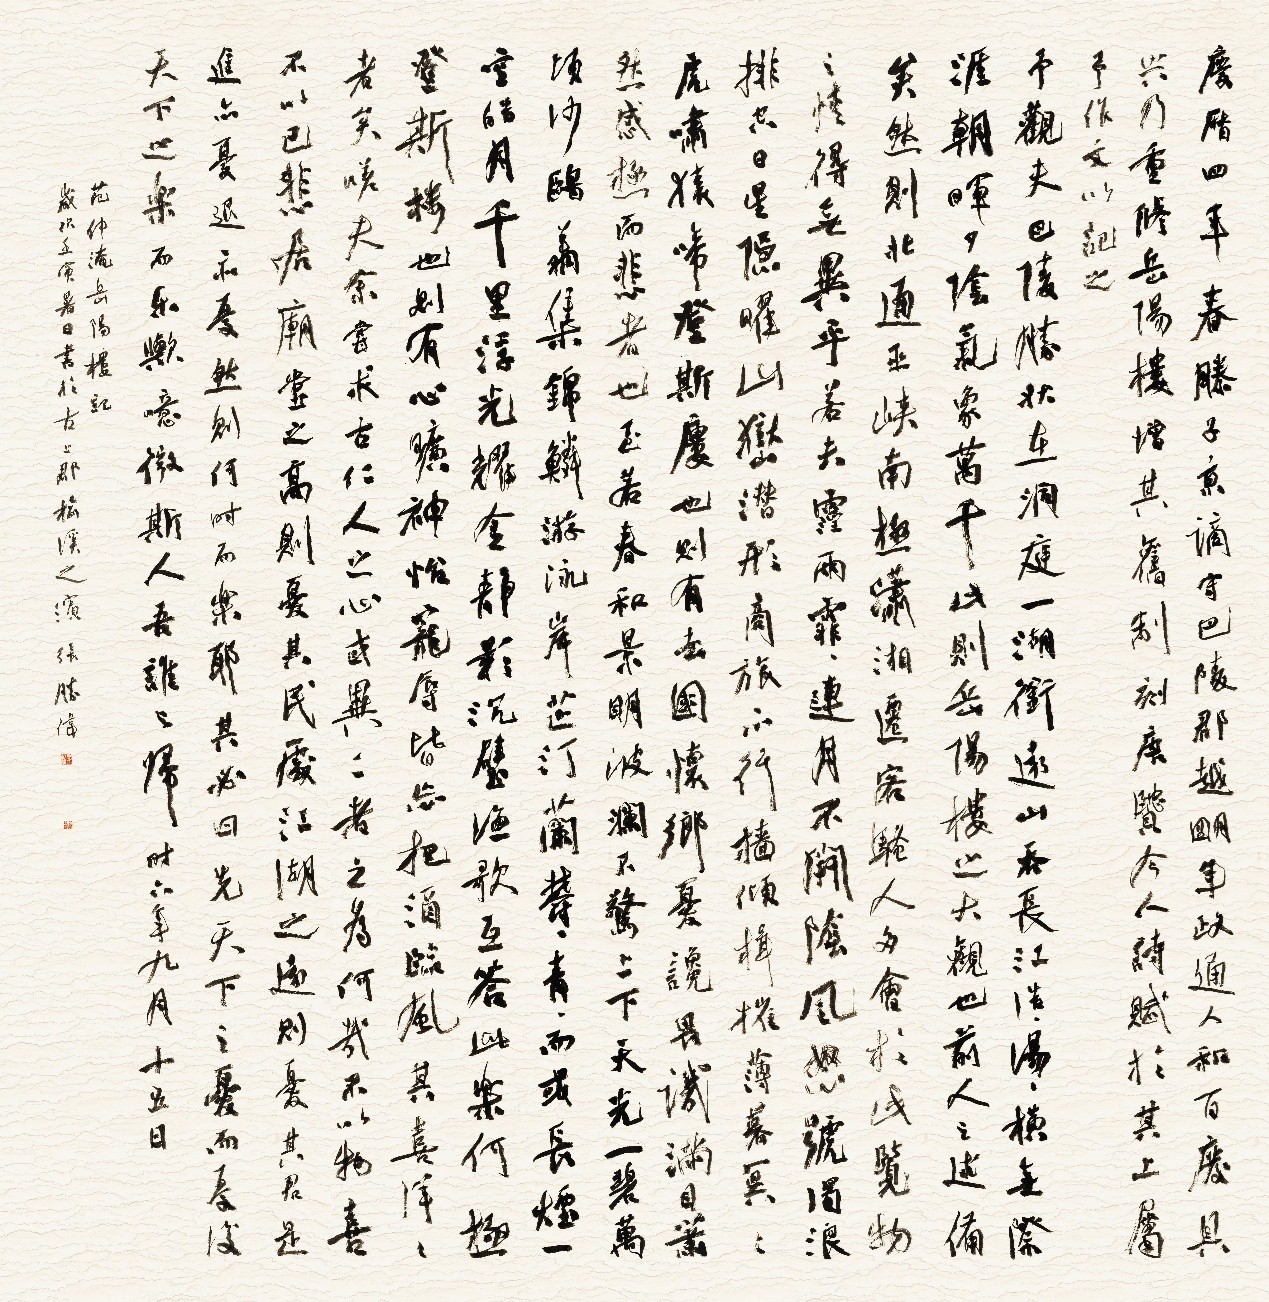 慶曆四年春滕子京謫守巴陵郡越明年政通人和百廢具
興乃重脩岳陽樓增其舊制刻唐賢今人詩賦於其上屬
予作文以記之
予觀夫巴陵勝狀在洞庭一湖銜遠山吞長江浩〻湯〻橫無際
涯朝暉夕陰氣象萬千此則岳陽樓之大觀也前人之述備
矣然則北通巫峽南極瀟湘遷客騷人多會於此覽物
之情得無異乎若夫霪雨霏〻連月不開陰風怒號濁浪
排空日星隱曜山嶽潛形商旅不行檣傾楫摧薄暮冥〻
虎嘯猿啼登斯樓也則有去國懷鄉憂讒畏譏滿目蕭
然感極而悲者也至若春和景明波瀾不驚上下天光一碧萬
頃沙鷗翔集錦鱗游泳岸芷汀蘭鬱〻青〻而或長煙一
空皓月千里浮光耀金靜影沉璧漁歌互答此樂何極
登斯樓也則有心曠神怡寵辱皆忘把酒臨風其喜洋〻
者矣嗟夫余嘗求古仁人之心或異二者之為何哉不以物喜
不以己悲居廟堂之高則憂其民處江湖之遠則憂其君是
進亦憂退亦憂然則何時而樂耶其必曰先天下之憂而憂後
天下之樂而樂歟噫微斯人吾誰與歸 時六年九月十五日
范仲淹岳陽樓記
歲次壬寅暑日書於古上郡榆溪之濱 張勝偉